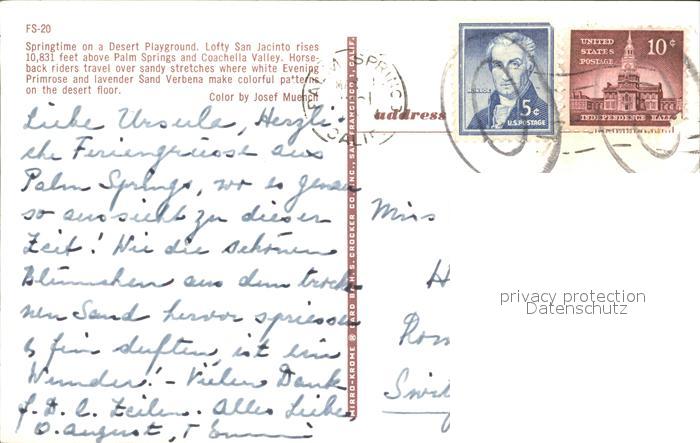 FS-20
Springtime on a Desert Playground. Lofty San Jacinto rises
10,831 feet above Palm Springs and Coachella Valley. Horse-
back riders travel over sandy stretches where white Evening
Primrose and lavender Sand Verbena make colorful patterns
on the desert floor.
Color by Josef Muench
Liebe Ursula, Herzli-
che Feriengrüsse aus
Palm Springs, wo es genau
so aussieht zu dieser
Zeit! Wie die schönen
Blümchen aus dem trocke
nen Sand hervor spriessen
& fein duften, ist ein
Wunder! - Vielen Dank
f. D. l. Zeilen. Alles Liebe,
O. August, T
MIRRO-KROME ® CARD BY H. S. CROCKER CO. INC., SAN FRANCISCO 1, CALIF.
PALM SPRINGS
CALIF
address
MONROE
5¢
U.S. POSTAGE
UNITED
STATES
POSTAGE
10¢
INDEPENDENCE HALL
Miss
H
Rom
Swi
privacy protection
Datenschutz